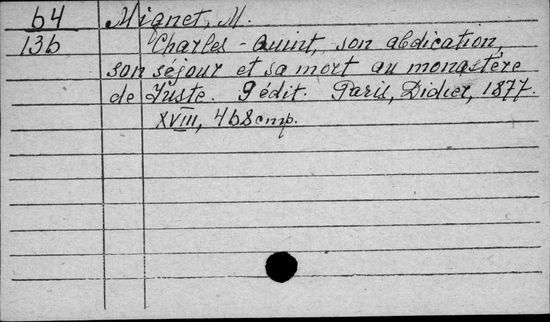 64 Mignet, M.
13b Charles-Quint, son abdication,
son séjour et sa mort au monastère
de Juste. 9 édit. Paris, Didier, 1877.
XVIII, 468 стр.